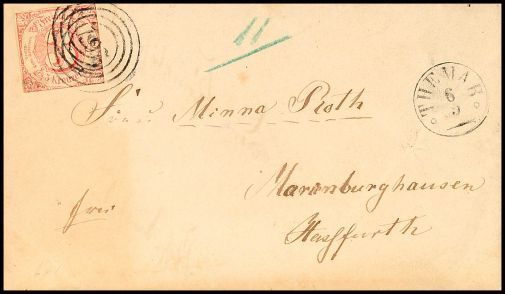 11
THEMAR
6
9
Frau Minna Roth
Marienburghausen
frei
Hassfurth